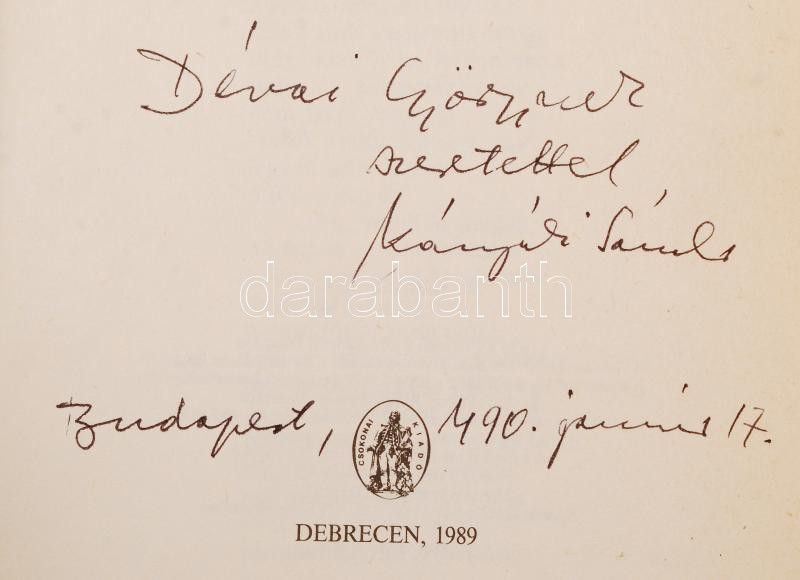 Dévai Györgynek
szeretettel
Kányádi Sándor
darabanth
Budapest, 1990. január 17.
CSOKONAI KIADÓ
DEBRECEN, 1989